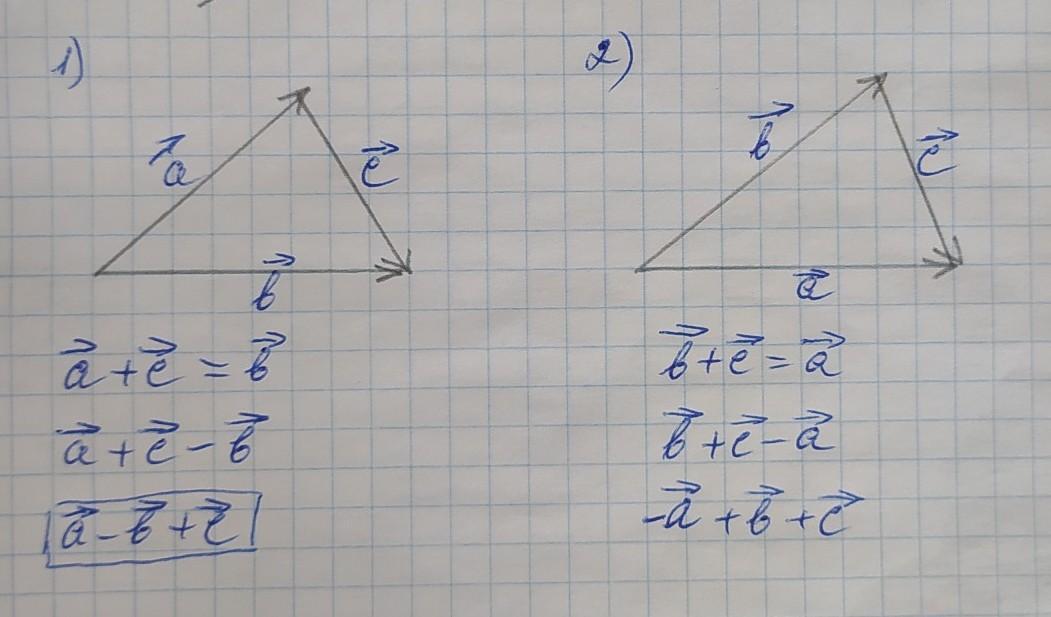 1)
a⃗
c⃗
b⃗
a⃗ + c⃗ = b⃗
a⃗ + c⃗ - b⃗
a⃗ - b⃗ + c⃗
2)
b⃗
c⃗
a⃗
b⃗ + c⃗ = a⃗
b⃗ + c⃗ - a⃗
-a⃗ + b⃗ + c⃗